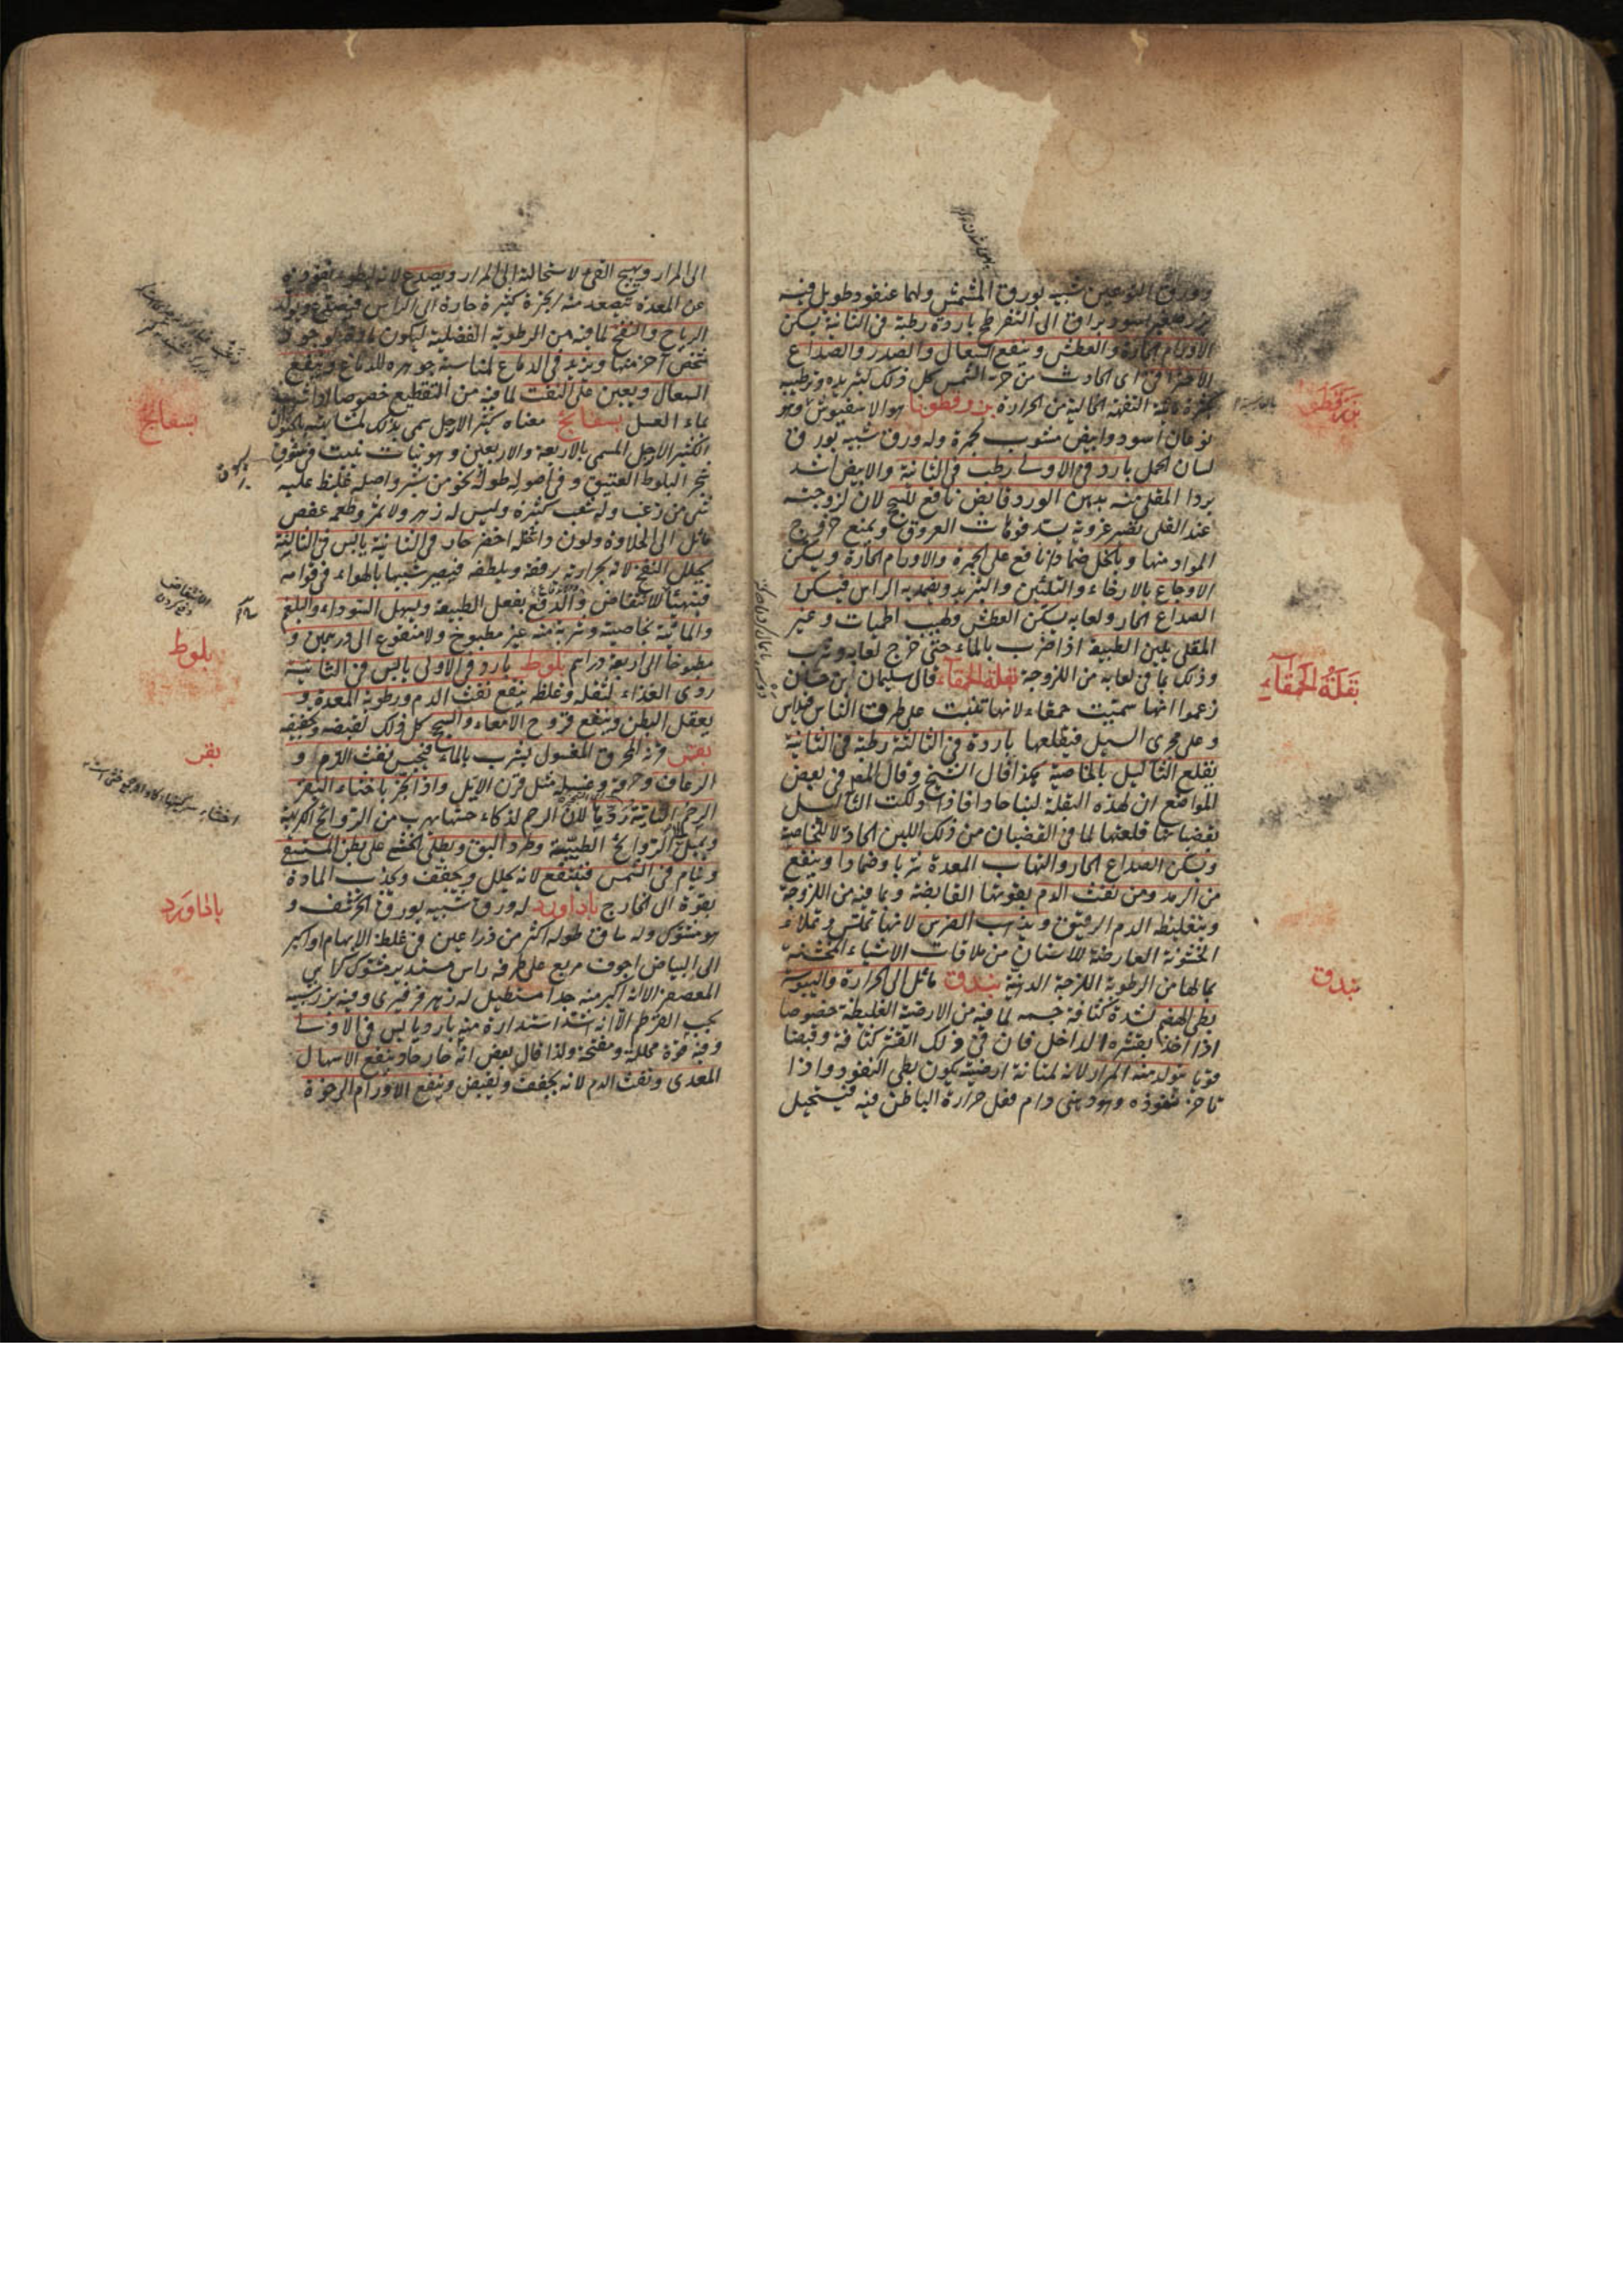 وورق النوعين شبيه بورق المشمش ولهما عنقود طويل فيه
بزر صغير اسود براق الى التفرطح باردة رطبة في الثانية يسكن
الاورام الحارة والعطش وينفع السعال والصدر والصداع
الاحتراقي اى الحادث من حر الشمس كل ذلك لتبريده وترطيبه
التفهة الخالية من الحرارة بزر قطونا هو الاسفيوش وهو
نوعان اسود وابيض مشوب بحمرة وله ورق شبيه بورق
لسان الحمل بارد في الاولى رطب في الثانية والابيض اشد
بردا المقلى منه بدهن الورد قابض نافع للسحج لان لزوجته
عند القلى تصير غروية يسد فوهات العروق ويمنع خروج
المواد منها وبالخل ضمادا نافع على الجمرة والاورام الحارة ويسكن
الاوجاع بالارخاء والتليين والتبريد ويضمد به الراس فيسكن
الصداع الحار ولعابه يسكن العطش ولهيب الحميات وغير
المقلى يلين الطبيعة اذا ضرب بالماء حتى خرج لعابه وشرب
وذلك بما في لعابه من اللزوجة بقلة الحمقاء قال سليمان ابن حسان
زعموا انها سميت حمقاء لانها تنبت على طرق الناس فيداس
وعلى مجرى السيل فيقلعها باردة في الثالثة رطبة في الثانية
يقلع الثآليل بالخاصية هكذا قال الشيخ وقال المص في بعض
المواضع ان لهذه البقلة لبنا حادا فاذا دلكت الثآليل
بقضبانها قلعتها لما في القضبان من ذلك اللبن الحاد لا للخاصة
ويسكن الصداع الحار والتهاب المعدة شربا وضمادا وينفع
من الرمد ومن نفث الدم بقوتها القابضة وبما فيه من اللزوجة
وبتغليظه الدم الرقيق ويذهب الضرس لانها تملس وتملاء
الخشونة العارضة للاسنان من ملاقات الاشياء الخشنة
بما لها من الرطوبة اللزجة الدهنية بندق مائل الى الحرارة واليبوسة
بطئ الهضم لشدة كثافة جسمه لما فيه من الارضية الغليظة خصوصا
اذا اخذ بقشره الداخل فان في ذلك القشر كثافة وقبضا
قويا يتولد منه المرار لانه لمتانة ارضيته يكون بطئ النفوذ واذا
تاخر نفوذه وهو دهنى دام فعل حرارة الباطن فيه فيستحيل
بزرقطونا
بقلة الحمقاء
بندق
الى المرار ويهيج القئ لاستحالته الى المرار ويصدع لانه لبطوء نفوذه
عن المعدة يتصعد منه ابخرة كثيرة حارة الى الراس فيصدع ويولد
الرياح والنفخ لما فيه من الرطوبة الفضلية
ويزيد في الدماغ لمناسبة جوهره للدماغ وينفع
السعال ويعين على النفث لما فيه من التقطيع خصوصا اذا شرب
بماء العسل بسفايج معناه كثير الارجل سمى بذلك لمشابهته بالحيوان
الكثير الارجل المسمى بالاربعة والاربعين وهو نبات ينبت في شقوق
شجر البلوط العتيق وفي اصوله طوله نحو من شبر واصله غليظ عليه
شئ من زغب وله شعب كثيرة وليس له زهر ولا ثمر وطعمه عفص
مائل الى الحلاوة ولون داخله اخضر حار في الثانية يابس في الثالثة
يحلل النفخ لانه بحرارته يرققه ويلطفه فيصير شبيها بالهواء في قوامه
فيتهيأ للانتفاض والدفع بفعل الطبيعة ويسهل السوداء والبلغم
والمائية بخاصية وشربة منه غير مطبوخ ولا منقوع الى درهمين و
مطبوخا الى اربعة دراهم بلوط بارد في الاولى يابس في الثانية
ردى الغذاء لثقله وغلظه ينفع نفث الدم ورطوبة المعدة و
يعقل البطن وينفع قروح الامعاء والسحج كل ذلك لقبضه وتجفيفه
بقر قرنه المحرق المغسول يشرب بالماء فيحبس نفث الدم و
الرعاف وحرقه وغسله مثل قرن الايل واذا بخر باخثاء البقر
الرحم الناتية ردها لان الرحم لذكاء حسها يهرب من الروائح الكريهة
ويميل الى الروائح الطيبة وطرد البق ويطلى الخثى على بطن المستسقى
وينام في الشمس فينتفع لانه يحلل ويجفف ويجذب المادة
بقوة الى الخارج باداورد له ورق شبيه بورق الخرشف و
هو مشوك وله ساق طوله اكثر من ذراعين في غلظ الابهام او اكبر
الى البياض اجوف مربع على طرفه راس مستدير مشوك كراس
المعصفر الا انه اكبر منه جدا مستطيل له زهر فرفيرى وفيه بزر شبيه
بحب القرطم الا انه اشد استدارة منه بارد يابس في الاولى
وفيه قوة محللة ومفتحة ولذا قال بعض انه حار جاد وينفع الاسهال
المعدى ونفث الدم لانه يجفف ويقبض وينفع الاورام الرخوة
بسفايج
بلوط
بقر
باداورد